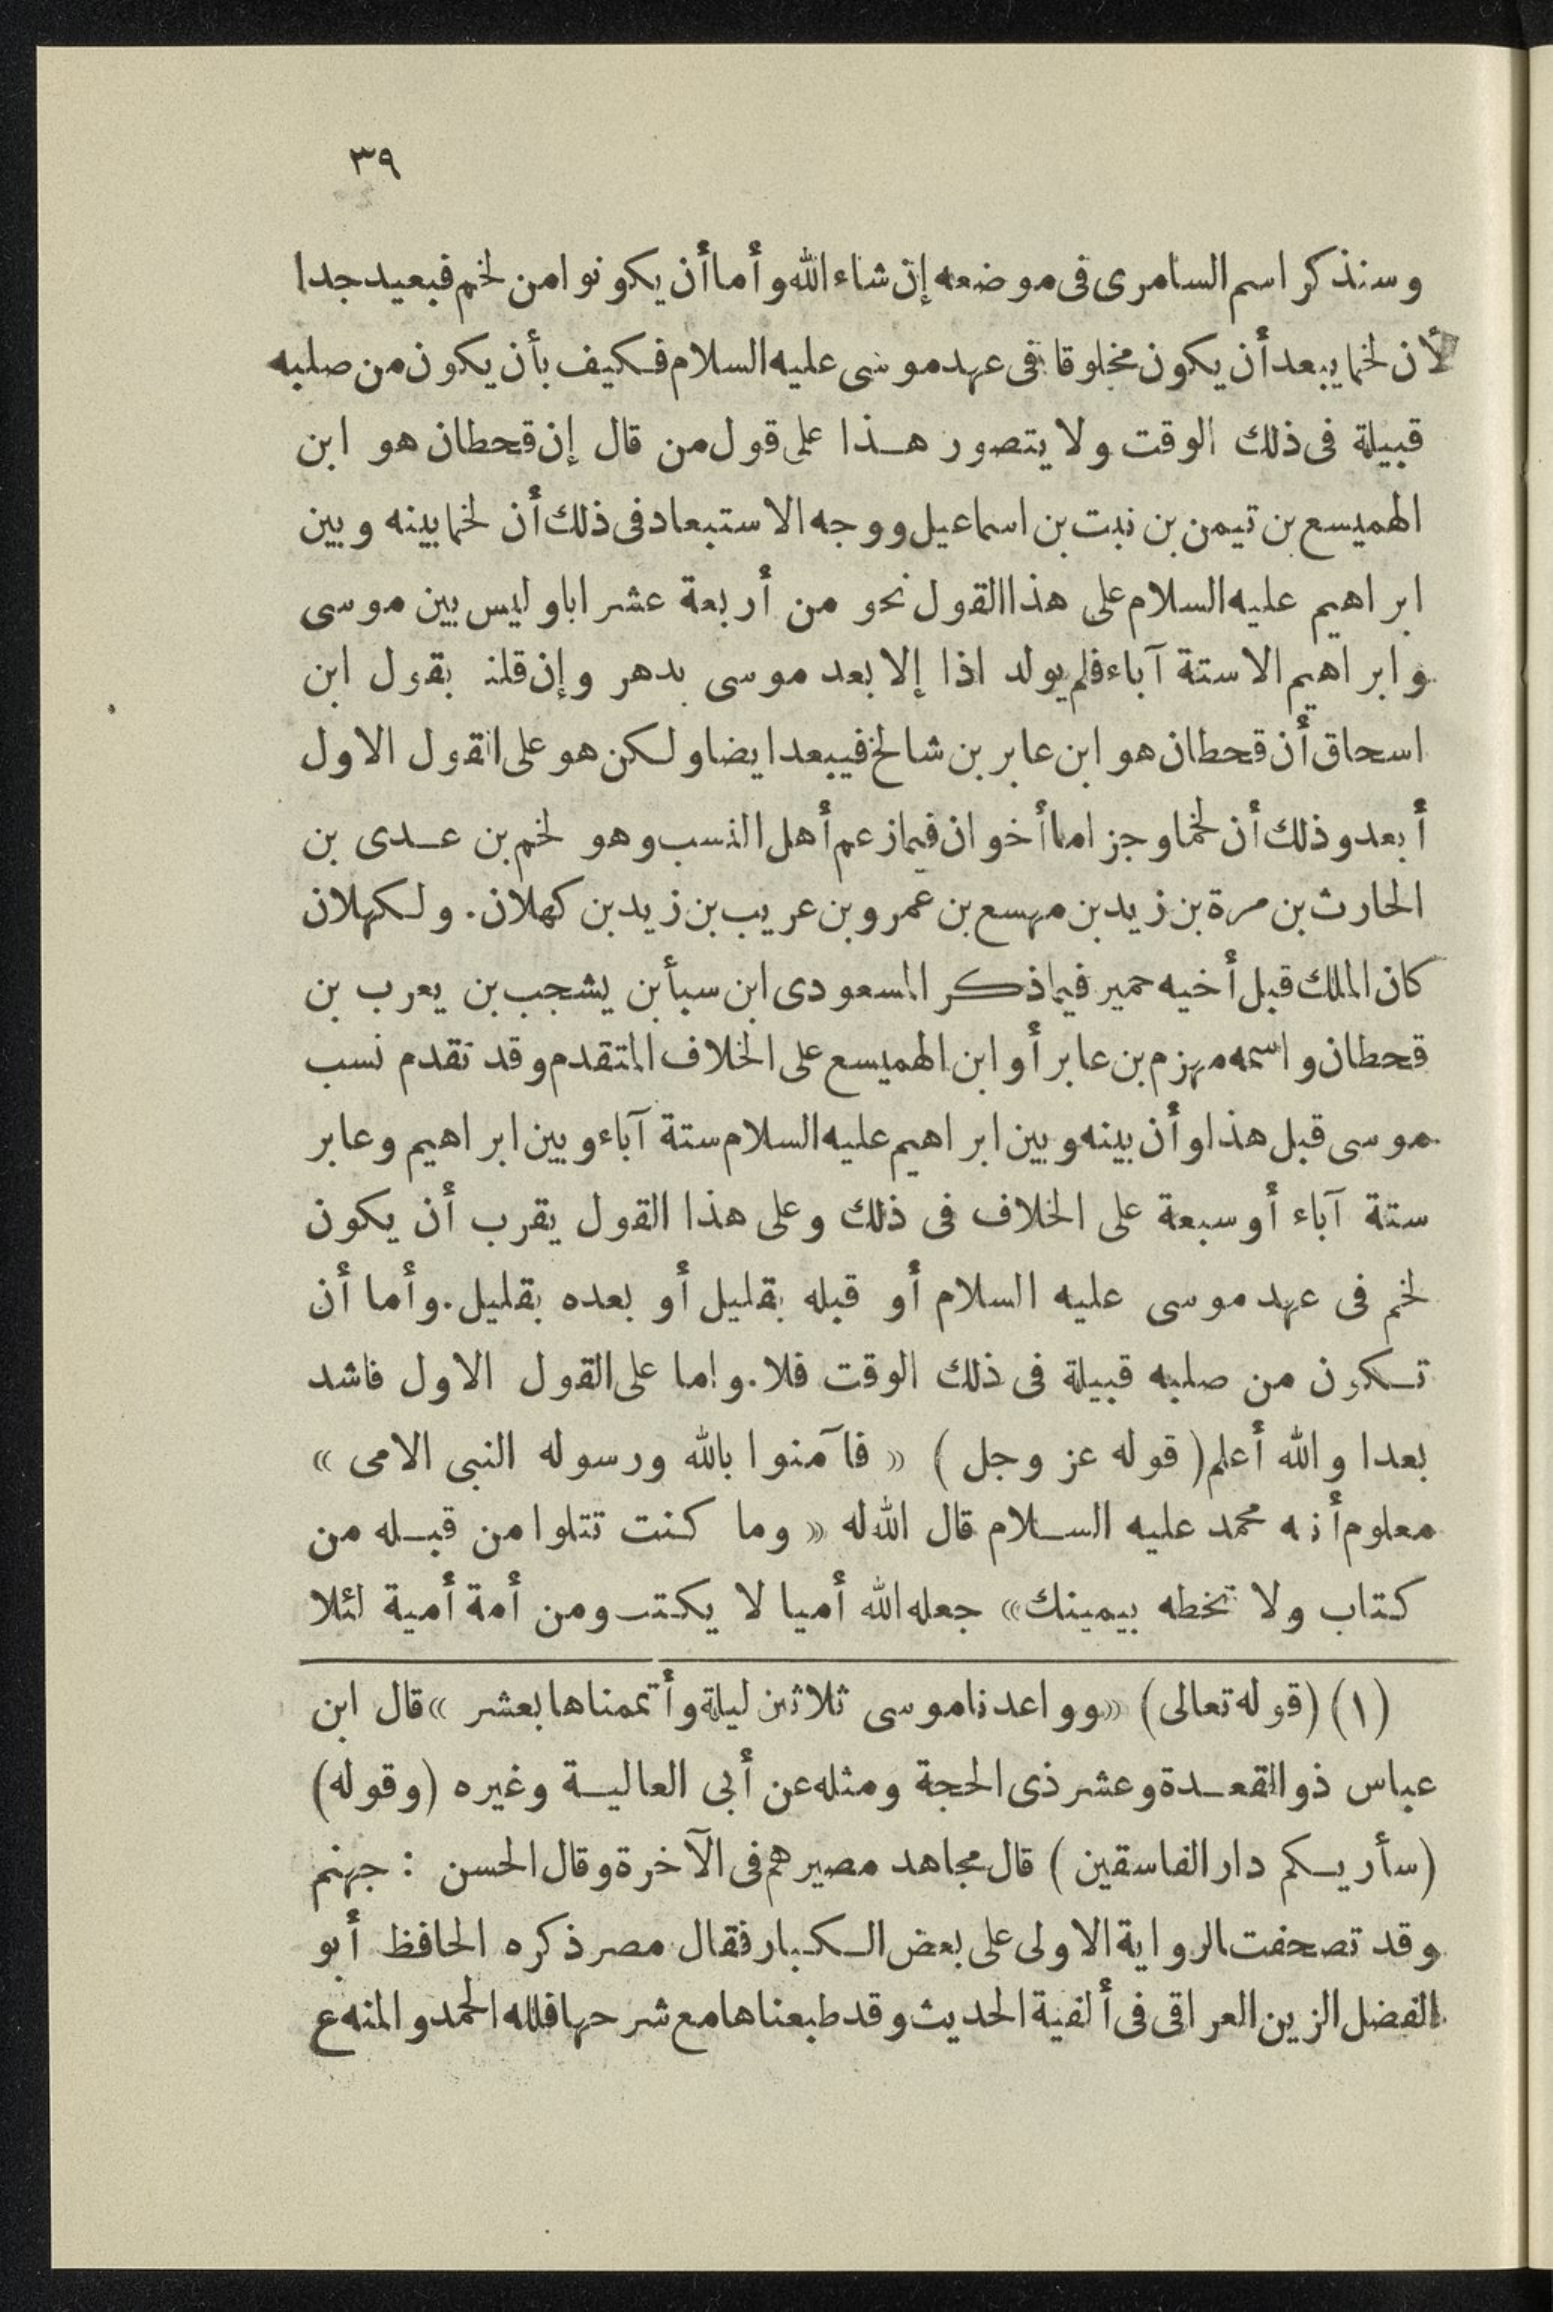 ٣٩
وسنذكر اسم السامرى فى موضعه إن شاء الله وأما أن يكونوا من لخم فبعيد جدا
لأن لخما يبعد أن يكون مخلوقا فى عهد موسى عليه السلام فكيف بأن يكون من صلبه
قبيلة فى ذلك الوقت ولا يتصور هذا على قول من قال إن قحطان هو ابن
الهميسع بن تيمن بن نبت بن اسماعيل ووجه الاستبعاد فى ذلك أن لخما بينه وبين
ابراهيم عليه السلام على هذا القول نحو من أربعة عشر ابا وليس بين موسى
وابراهيم الا ستة آباء فلم يولد اذا إلا بعد موسى بدهر وإن قلنـ بقول ابن
اسحاق أن قحطان هو ابن عابر بن شالخ فيبعد ايضا ولكن هو على القول الاول
أبعد وذلك أن لخما وجزاما أخوان فيما زعم أهل النسب وهو لخم بن عدى بن
الحارث بن مرة بن زيد بن مهسع بن عمرو بن عريب بن زيد بن كهلان. ولكهلان
كان الملك قبل أخيه حمير فيما ذكر المسعودى ابن سبأ بن يشجب بن يعرب بن
قحطان واسمه مهزم بن عابر أو ابن الهميسع على الخلاف المتقدم وقد تقدم نسب
موسى قبل هذا وأن بينه وبين ابراهيم عليه السلام ستة آباء وبين ابراهيم وعابر
ستة آباء أو سبعة على الخلاف فى ذلك وعلى هذا القول يقرب أن يكون
لخم فى عهد موسى عليه السلام أو قبله بقليل أو بعده بقليل. وأما أن
تكون من صلبه قبيلة فى ذلك الوقت فلا. واما على القول الاول فاشد
بعدا والله أعلم (قوله عز وجل) « فآمنوا بالله ورسوله النبى الامى »
معلوم أنه محمد عليه السلام قال الله له « وما كنت تتلوا من قبله من
كتاب ولا تخطه بيمينك» جعله الله أميا لا يكتب ومن أمة أمية لئلا
(١) (قوله تعالى) «وواعدنا موسى ثلاثين ليلة وأتممناها بعشر » قال ابن
عباس ذو القعدة وعشر ذى الحجة ومثله عن أبى العالية وغيره (وقوله)
(سأريكم دار الفاسقين) قال مجاهد مصيرهم فى الآخرة وقال الحسن : جهنم
وقد تصحفت الرواية الاولى على بعض الكبار فقال مصر ذكره الحافظ أبو
الفضل الزين العراقى فى ألفية الحديث وقد طبعناها مع شرحها فلله الحمد والمنه ع